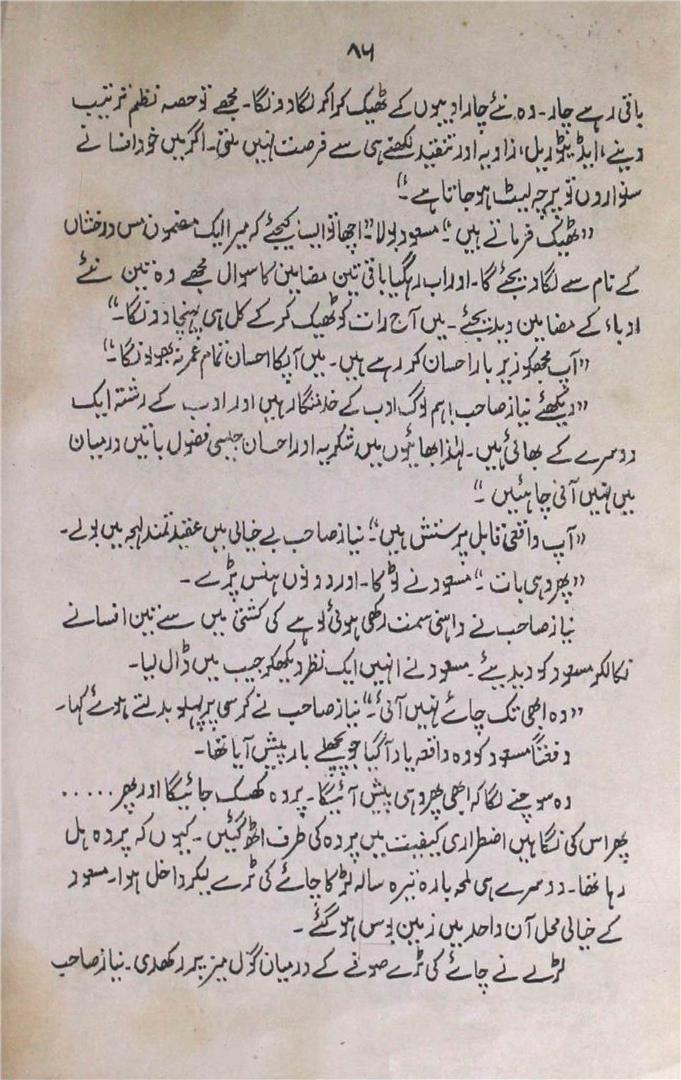 ۸۶
باقی رہے چار۔ وہ نئے چار ادیبوں کے ٹھیک کرا کر لگا دونگا۔ مجھے تو حصہ نظم ترتیب
دینے، ایڈیٹوریل، زاویہ اور تنقید لکھنے ہی سے فرصت نہیں ملتی۔ اگر میں خود افسانے
سنواروں تو پرچہ لیٹ ہو جاتا ہے۔"
"ٹھیک فرماتے ہیں۔" مسعود بولا۔ "اچھا تو ایسا کیجئے کہ میرا ایک مضمون مس درخشاں
کے نام سے لگا دیجئے گا۔ اور اب رہ گیا باقی تین مضامین کا سوال مجھے وہ تین نئے
ادباء کے مضامین دیدیجئے۔ میں آج رات کو ٹھیک کر کے کل ہی پہنچا دونگا۔"
"آپ مجھکو زیر بار احسان کر رہے ہیں۔ میں آپکا احسان تمام عمر نہ بھولونگا۔"
"دیکھئے نیاز صاحب! ہم لوگ ادب کے خدمتگار ہیں اور ادب کے رشتہ ایک
دوسرے کے بھائی ہیں۔ لہٰذا بھائیوں میں شکریہ اور احسان جیسی فضول باتیں درمیان
میں نہیں آنی چاہئیں۔"
"آپ واقعی قابل پرستش ہیں۔" نیاز صاحب بے خیالی میں عقیدتمند لہجہ میں بولے۔
"پھر وہی بات۔" مسعود نے ٹوکا۔ اور دونوں ہنس پڑے۔
نیاز صاحب نے داہنی سمت رکھی ہوئی لوہے کی کشتی میں سے تین افسانے
نکالکر مسعود کو دیدیئے۔ مسعود نے انہیں ایک نظر دیکھکر جیب میں ڈال لیا۔
"وہ ابھی تک چائے نہیں آئی۔" نیاز صاحب نے کرسی پر پہلو بدلتے ہوئے کہا۔
دفعتاً مسعود کو وہ واقعہ یاد آ گیا جو پچھلے بار پیش آیا تھا۔
وہ سوچنے لگا کہ ابھی پھر وہی پیش آئیگا۔ پردہ کھسک جائیگا اور پھر.....
پھر اس کی نگاہیں اضطراری کیفیت میں پردہ کی طرف اٹھ گئیں۔ کیوں کہ پردہ ہل
رہا تھا۔ دوسرے ہی لمحہ بارہ تیرہ سالہ لڑکا چائے کی ٹرے لیکر داخل ہوا۔ مسعود
کے خیالی محل آن واحد میں زمین بوس ہو گئے۔
لڑکے نے چائے کی ٹرے صوفے کے درمیان گول میز پر رکھدی۔ نیاز صاحب